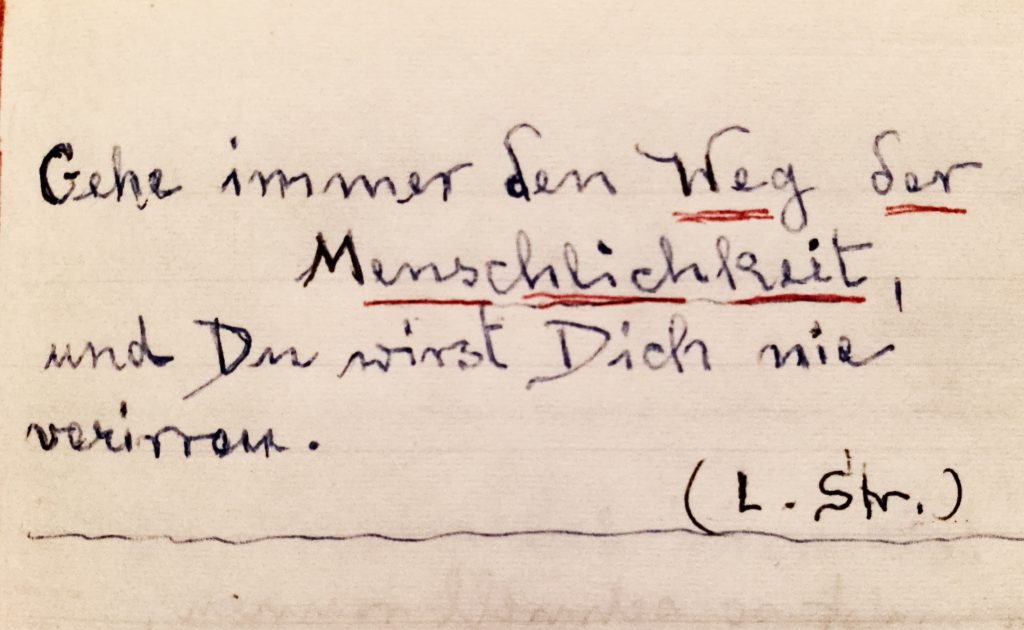 Gehe immer den Weg der
Menschlichkeit,
und Du wirst Dich nie
verirren.
(L. Str.)